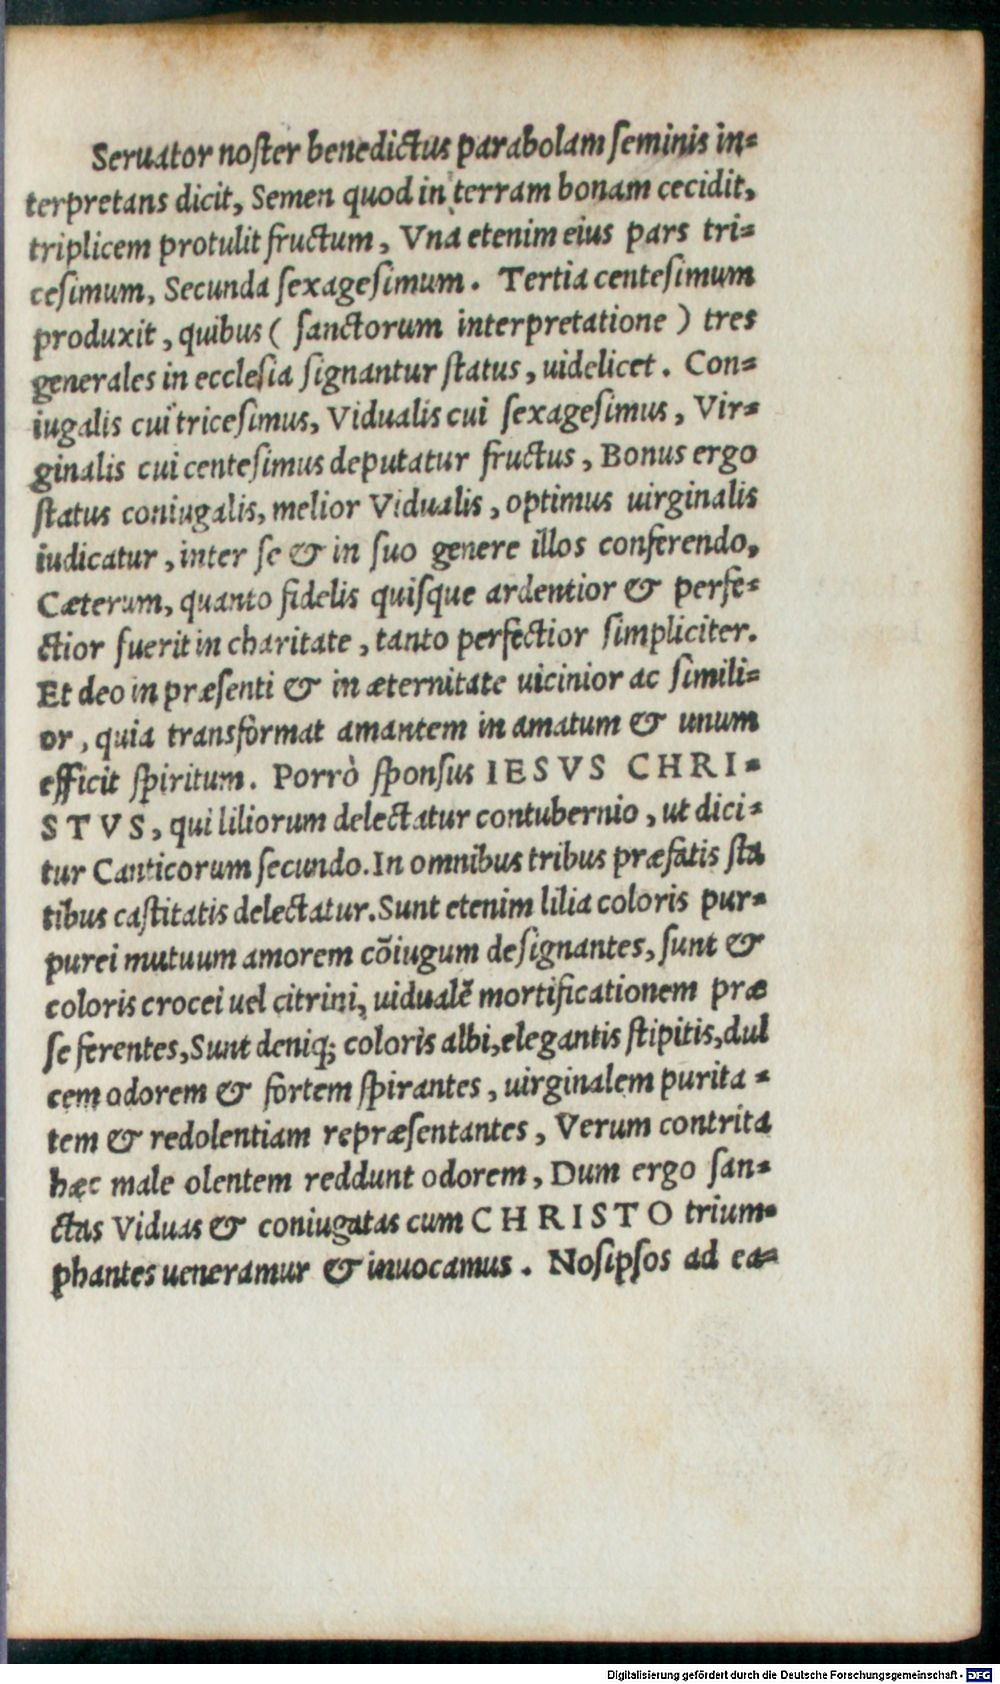 Seruator noster benedictus parabolam seminis in=
terpretans dicit, Semen quod in terram bonam cecidit,
triplicem protulit fructum, Vna etenim eius pars tri=
cesimum, Secunda sexagesimum. Tertia centesimum
produxit, quibus ( sanctorum interpretatione ) tres
generales in ecclesia signantur status, uidelicet. Con=
iugalis cui tricesimus, Vidualis cui sexagesimus, Vir=
ginalis cui centesimus deputatur fructus, Bonus ergo
status coniugalis, melior Vidualis, optimus uirginalis
iudicatur, inter se & in suo genere illos conferendo,
Cæterum, quanto fidelis quisque ardentior & perfe=
ctior fuerit in charitate, tanto perfectior simpliciter.
Et deo in præsenti & in æternitate uicinior ac simili=
or, quia transformat amantem in amatum & unum
efficit spiritum. Porrò sponsus IESVS CHRI=
STVS, qui liliorum delectatur contubernio, ut dici=
tur Canticorum secundo. In omnibus tribus præfatis sta
tibus castitatis delectatur. Sunt etenim lilia coloris pur=
purei mutuum amorem cõiugum designantes, sunt &
coloris crocei uel citrini, uidualẽ mortificationem præ
se ferentes, Sunt deniq; coloris albi, elegantis stipitis, dul
cem odorem & fortem spirantes, uirginalem purita=
tem & redolentiam repræsentantes, Verum contrita
hæc male olentem reddunt odorem, Dum ergo san=
ctas Viduas & coniugatas cum CHRISTO trium=
phantes ueneramur & inuocamus. Nosipsos ad ea=
Digitalisierung gefördert durch die Deutsche Forschungsgemeinschaft - DFG